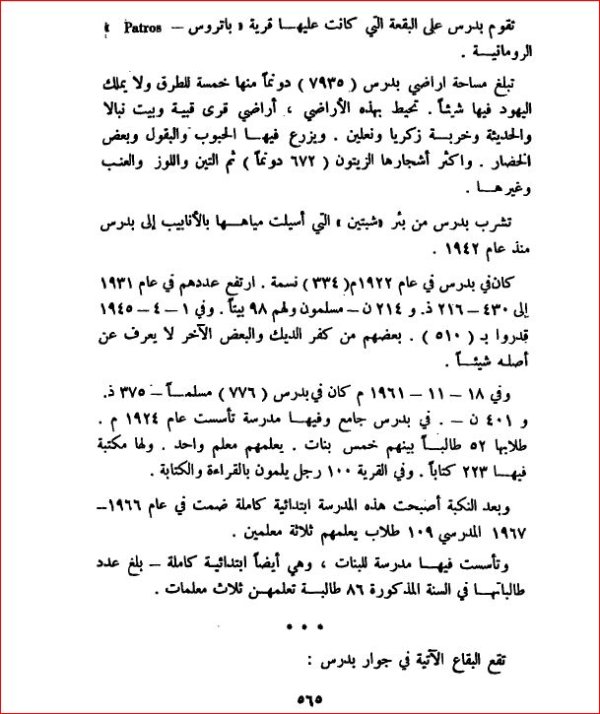 تقوم بدرس على البقعة التي كانت عليها قرية « باتروس – Patros »
الرومانية .
تبلغ مساحة اراضي بدرس ( ٧٩٣٥ ) دونماً منها خمسة للطرق ولا يملك
اليهود فيها شيئاً . تحيط بهذه الأراضي ، أراضي قرى قبية وبيت نبالا
والحديثة وخربة زكريا ونعلين . ويزرع فيها الحبوب والبقول وبعض
الخضار . واكثر أشجارها الزيتون ( ٦٧٢ دونماً ) ثم التين واللوز والعنب
وغيرها .
تشرب بدرس من بئر «شبتين » التي أسيلت مياهها بالأنابيب إلى بدرس
منذ عام ١٩٤٢ .
كان في بدرس في عام ١٩٢٢م( ٣٣٤ ) نسمة . ارتفع عددهم في عام ١٩٣١
إلى ٤٣٠ – ٢١٦ ذ. و ٢١٤ ن – مسلمون ولهم ٩٨ بيتاً . وفي ١ – ٤ – ١٩٤٥
قدروا بـ ( ٥١٠ ) . بعضهم من كفر الديك والبعض الآخر لا يعرف عن
أصله شيئاً .
وفي ١٨ – ١١ – ١٩٦١ م كان في بدرس ( ٧٧٦ ) مسلماً – ٣٧٥ ذ.
و ٤٠١ ن – . في بدرس جامع وفيها مدرسة تأسست عام ١٩٢٤ م .
طلابها ٥٢ طالباً بينهم خمس بنات . يعلمهم معلم واحد . ولها مكتبة
فيها ٢٢٣ كتاباً . وفي القرية ١٠٠ رجل يلمون بالقراءة والكتابة .
وبعد النكبة أصبحت هذه المدرسة ابتدائية كاملة ضمت في عام ١٩٦٦–
١٩٦٧ المدرسي ١٠٩ طلاب يعلمهم ثلاثة معلمين .
وتأسست فيها مدرسة للبنات ، وهي أيضاً ابتدائية كاملة – بلغ عدد
طالباتها في السنة المذكورة ٨٦ طالبة تعلمهن ثلاث معلمات .
• • •
تقع البقاع الآتية في جوار بدرس :
٥٦٥